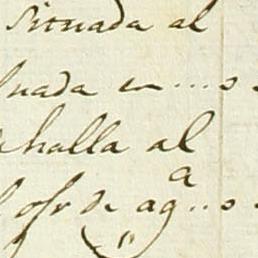 situada al
uada en...s
halla al
a
de ag..s